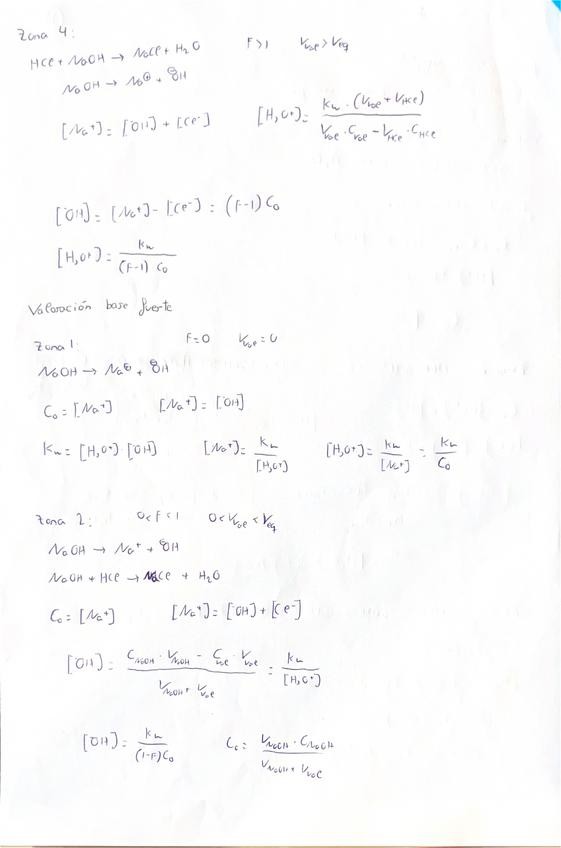 Zona 4: F>1 Vval > Veq
HCl + NaOH → NaCl + H2O
NaOH → Na⊕ + ⊖OH
[Na+] = [-OH] + [Cl-] [H3O+] = Kw · (Vval + VHCl) / (Vval · Cval − VHCl · CHCl)
[-OH] = [Na+] − [Cl-] = (F-1) C0
[H3O+] = Kw / ((F-1) C0)
Valoración base fuerte
Zona 1: F=0 Vval = 0
NaOH → Na⊕ + ⊖OH
C0 = [Na+] [Na+] = [-OH]
Kw = [H3O+] · [-OH] [Na+] = Kw / [H3O+] [H3O+] = Kw / [Na+] = Kw / C0
Zona 2: 0<F<1 0<Vval<Veq
NaOH → Na+ + ⊖OH
NaOH + HCl → NaCl + H2O
C0 = [Na+] [Na+] = [-OH] + [Cl-]
[-OH] = (CNaOH · VNaOH − Cval · Vval) / (VNaOH + Vval) = Kw / [H3O+]
[-OH] = Kw / ((1-F)C0) C0 = (VNaOH · CNaOH) / (VNaOH + Vval)